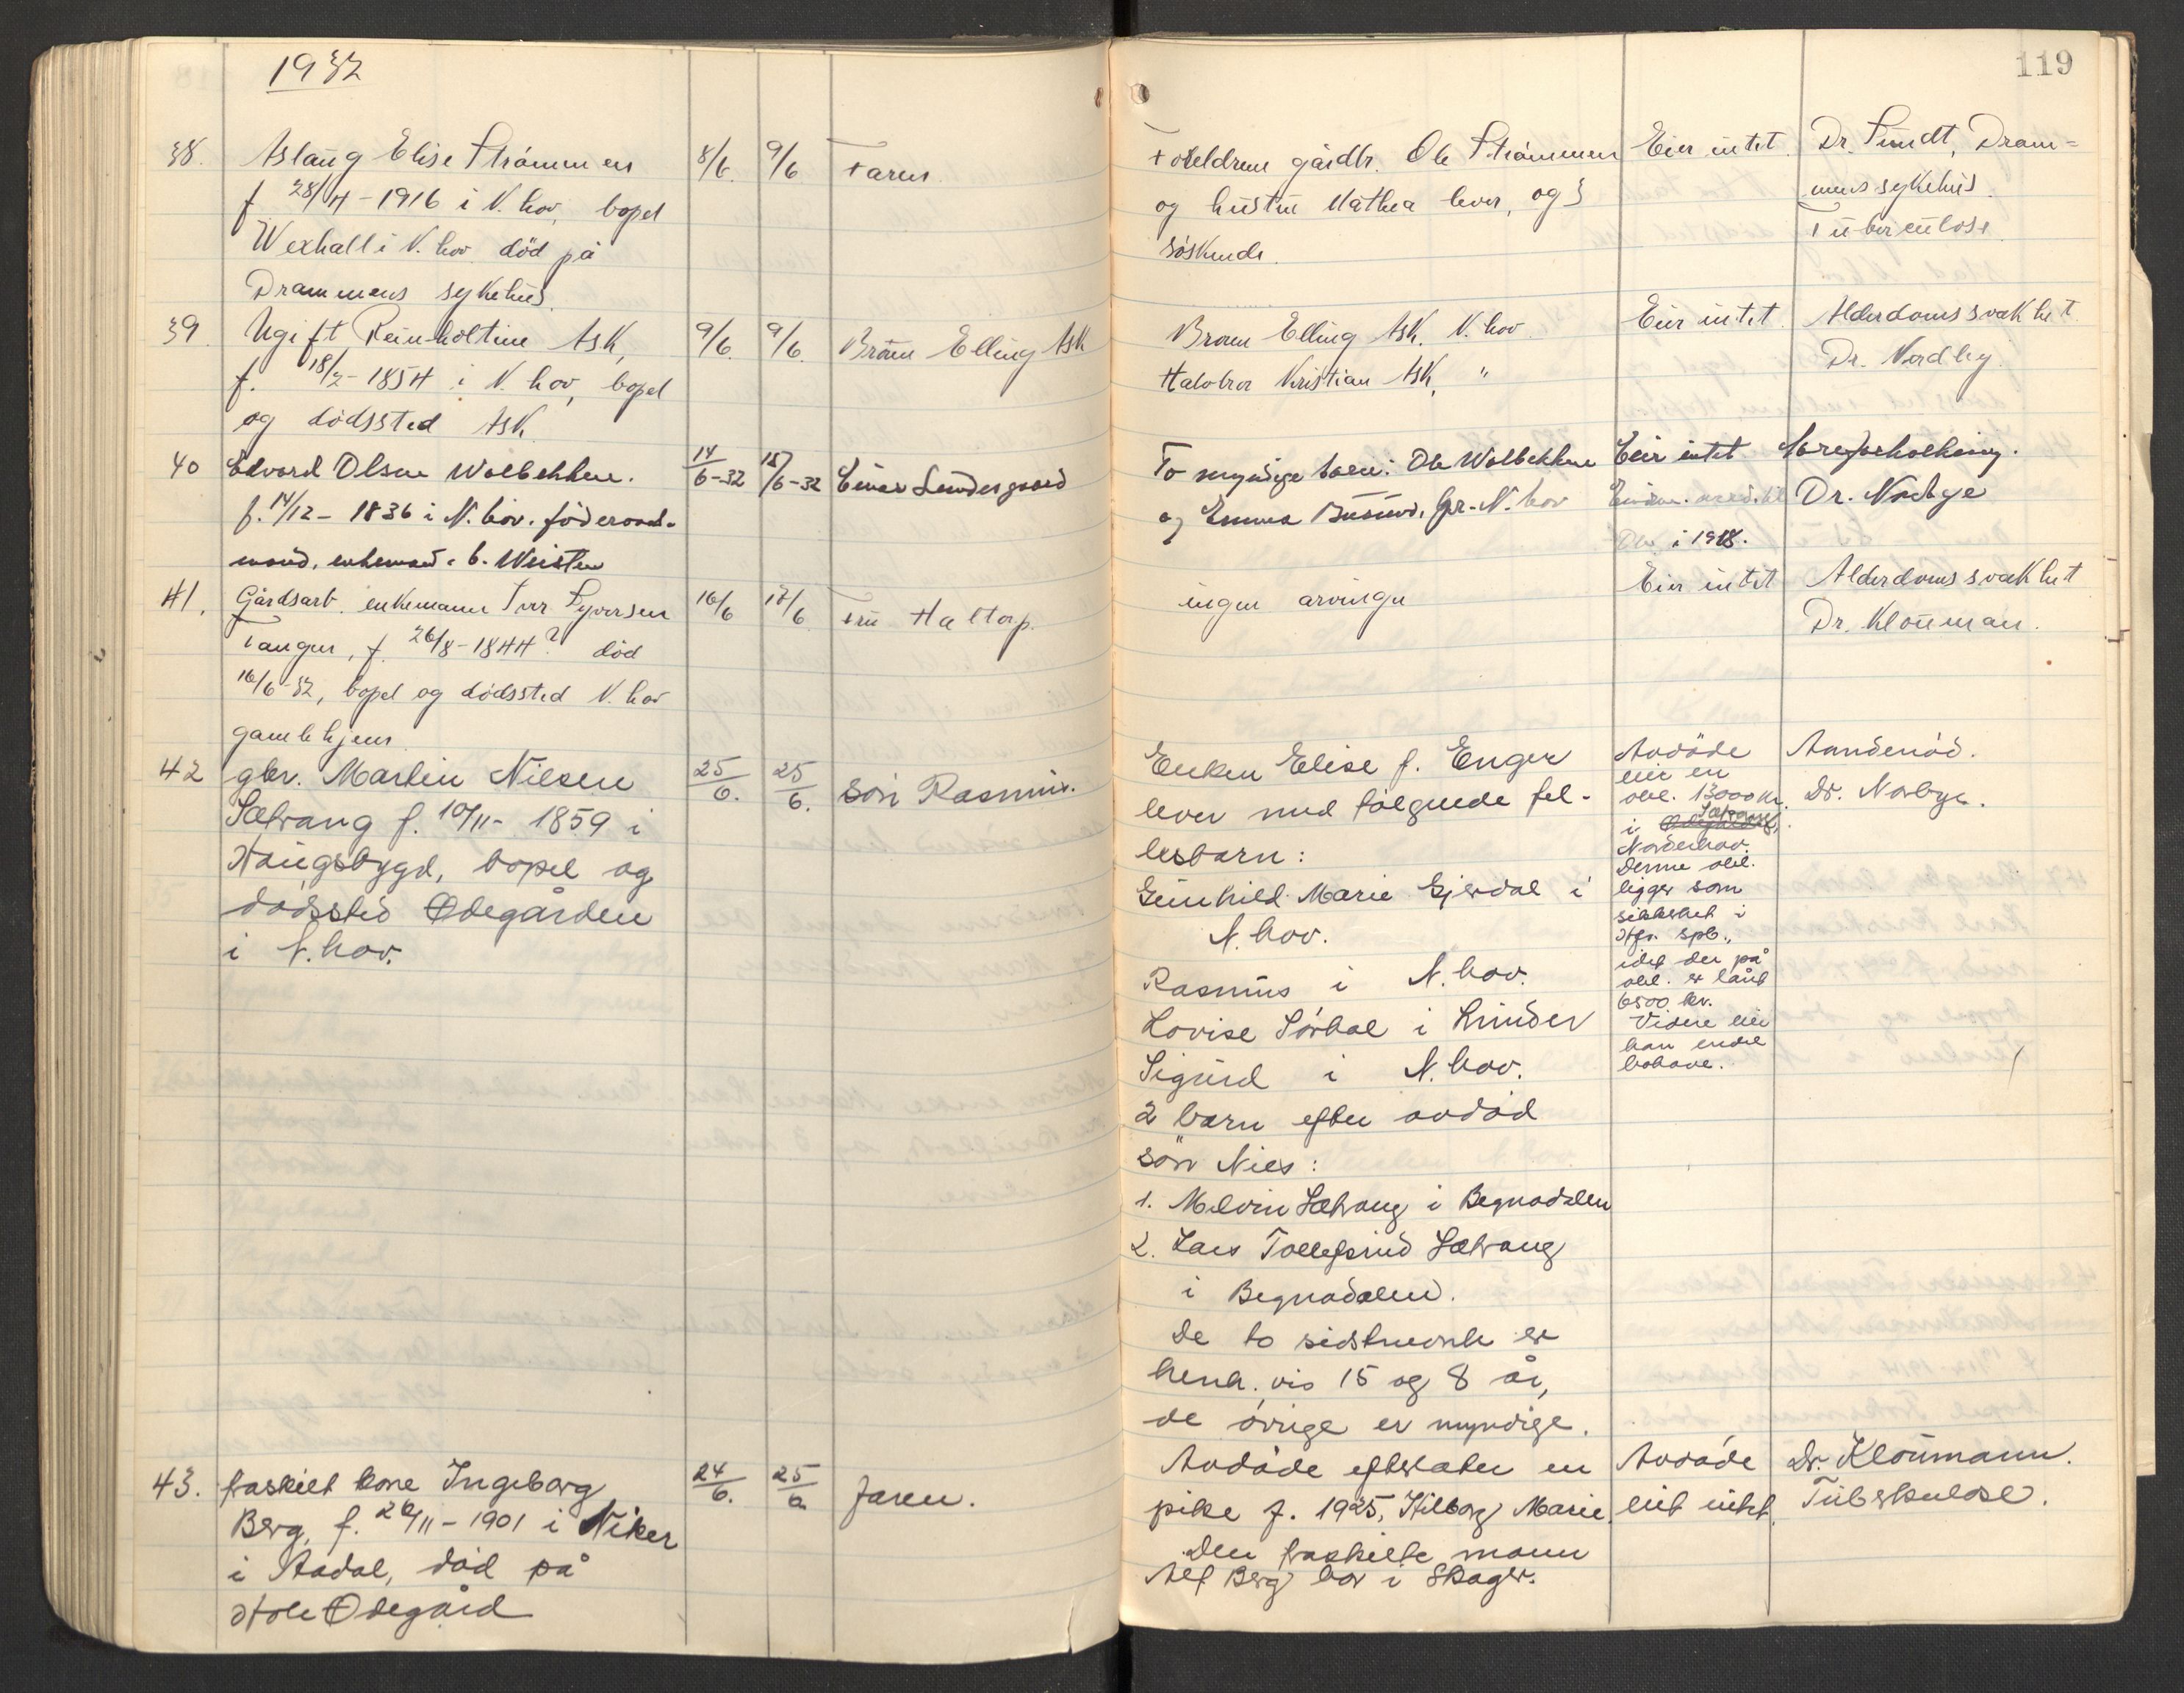 1932
119
38. Aslaug Elise Strømmen
f 28/4-1916 i N.hov, bopel
Wexhall i N.hov død på
Drammens sykehus.
8/6. 9/6 Faren
Foreldrene gårdbr. Ole Strømmen
og hustru Mathea lever, og 3
søskende.
Eier intet.
Dr. Sundt, Dram=
mens sykehus.
Tuberculose
39. Ugift Reinholtine Ask,
f. 18/2-1854 i N.hov, bopel
og dødssted Ask
9/6. 9/6. Broren Elling Ask
Broren Elling Ask, N.hov
Halvbror Kristian Ask, "
Eier intet.
Alderdomssvakhet
Dr. Nordby
40 Edvard Olsen Wolbekken.
f. 14/12-1836 i N.hov. föderaad-
mand, enkemand. b. Weisten
14/6-32 15/6-32 Einar Lundesgaard
To myndige barn: Ole Wolbekken
og Emma Busund, gr. N.hov
Eier intet
i 1918.
Dr. Norbye
41. Gårdsarb. enkemann Iver Syversen
Tanger, f. 26/8-1844? død
16/6-32, bopel og dødssted N.hov
gamlehjem
16/6 17/6 fru Haltorp.
ingen arvinger
Eier intet
Alderdomssvakhet
Dr. Kloumann.
42 gbr. Martin Nilsen
Sætrang f. 10/11-1859 i
Haugsbygd, bopel og
dødssted Ødegården
i N.hov.
25/6. 25/6. sön Rasmus.
Enken Elise f. Enger
lever med følgende fel-
lesbarn:
Gunhild Marie Gjerdal i
N.hov.
Rasmus i N.hov.
Lovise Sørbøl i Lunder
Sigurd i N.hov.
2 barn efter avdød
sön Nils:
1. Melvin Sætrang i Begnadalen
2. Lars Tollefsrud Sætrang
i Begnadalen.
De to sidstnevnte er
henh.vis 15 og 8 år,
de øvrige er myndige.
Avdöde
eier en
obl. 13000 kr.
i Sætrang,
Norderhov.
Denne obl.
ligger som
sikkerhet i
Hfr. spb.,
idet der på
obl. er lånt
6500 kr.
Videre eier
han endel
bohave.
Aandenød.
Dr. Norbye.
43. fraskilt kone Ingeborg
Berg, f. 26/11-1901 i Viker
i Aadal, död på
Hole Ødegård
24/6. 25/6 faren.
Avdøde efterlater en
pike f. 1925, Hilborg Marie.
Den fraskilte mann
Alf Berg bor i Skoger.
Avdøde
eiet intet.
Dr. Kloumann.
Tuberkulose.